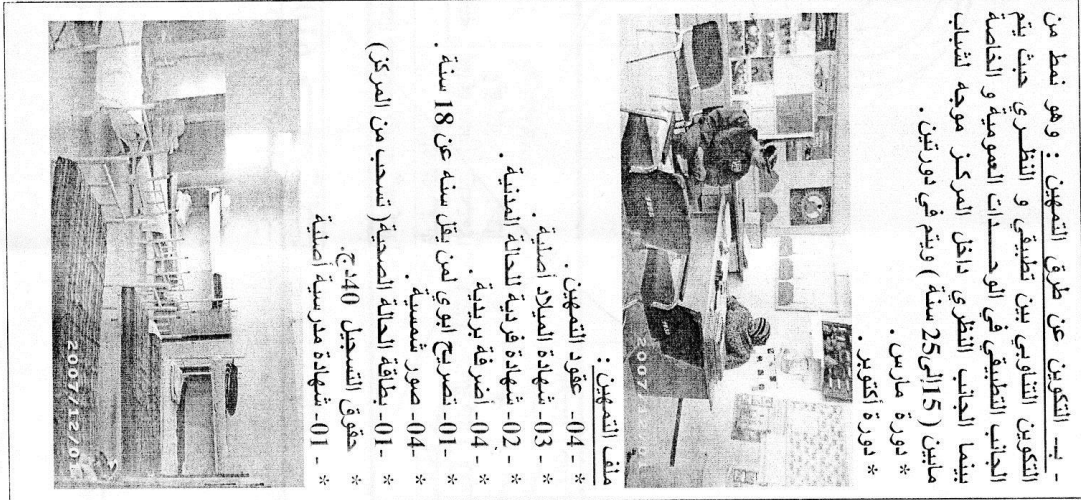 - بـ التكوين عن طرق التمهين : وهو نمط من
التكوين التناوبي بين تطبيقي و النظري حيث يتم
الجانب التطبيقي في الوحـــدات العمومية و الخاصة
بينما الجانب النظري داخل المركز موجه لشباب
مابين ( 15الى25 سنة ) ويتم في دورتين .
* دورة مارس .
* دورة أكتوبر .
2007/12/01
ملف التمهين :
* -04 عقود التمهين .
* -03 شهادة الميلاد أصلية .
* -02 شهادة فردية للحالة المدنية .
* -04 أضرفة بريدية .
* -01 تصريح ابوي لمن يقل سنه عن 18 سنة .
* -04 صور شمسية .
* -01 بطاقة الحالة الصحية ( تسحب من المركز)
* حقوق التسجيل 40دج.
* -01 شهادة مدرسية أصلية
2007/12/01